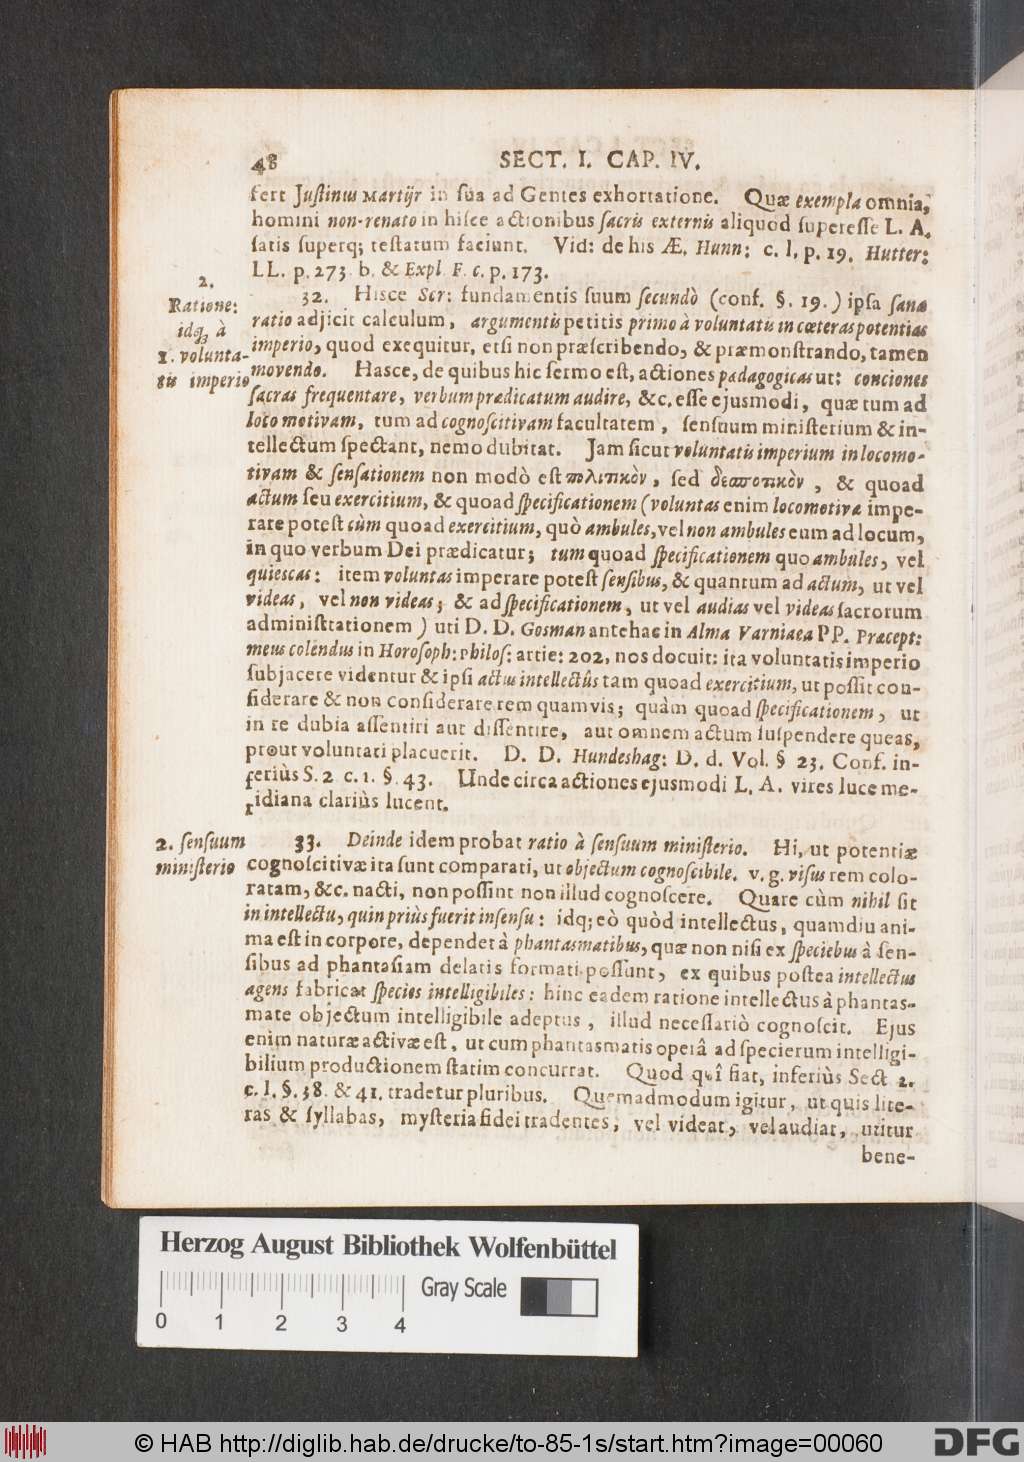 48 SECT. I. CAP. IV.
fert Juſtinus Martÿr in ſua ad Gentes exhortatione. Quæ exempla omnia,
homini non-renato in hiſce actionibus ſacris externis aliquod ſupereſſe L. A.
ſatis ſuperq; teſtatum faciunt. Vid: de his Æ. Hunn: c. l. p. 19. Hutter:
LL. p. 273. b. & Expl. F. c. p. 173.
2.
Ratione:
idq; à
1. volunta-
tis imperio
32. Hisce Scr: fundamentis ſuum ſecundò (conf. §. 19.) ipſa ſana
ratio adjicit calculum, argumentis petitis primo à voluntatis in cæteras potentias
imperio, quod exequitur, etſi non præſcribendo, & præmonſtrando, tamen
movendo. Hasce, de quibus hic ſermo eſt, actiones pædagogicas ut: conciones
ſacras frequentare, verbum prædicatum audire, &c. eſſe ejusmodi, quæ tum ad
loco motivam, tum ad cognoſcitivam facultatem, ſenſuum miniſterium & in-
tellectum ſpectant, nemo dubitat. Jam ſicut voluntatis imperium in locomo-
tivam & ſenſationem non modò eſt πολιτικὸν, ſed δεσποτικὸν, & quoad
actum ſeu exercitium, & quoad ſpecificationem (voluntas enim locomotivæ impe-
rare poteſt cùm quoad exercitium, quò ambules, vel non ambules eum ad locum,
in quo verbum Dei prædicatur; tum quoad ſpecificationem quo ambules, vel
quieſcas: item voluntas imperare poteſt ſenſibus, & quantum ad actum, ut vel
videas, vel non videas; & ad ſpecificationem, ut vel audias vel videas ſacrorum
adminiſtrationem) uti D. D. Gosman antehac in Alma Varniaca PP. Præcept:
meus colendus in Horoſoph: Philoſ: artic: 202, nos docuit: ita voluntatis imperio
ſubjacere videntur & ipſi actus intellectûs tam quoad exercitium, ut poſſit con-
ſiderare & non conſiderare rem quamvis; quàm quoad ſpecificationem, ut
in re dubia aſſentiri aut diſſentire, aut omnem actum ſuſpendere queas,
prout voluntati placuerit. D. D. Hundeshag: D. d. Vol. § 23. Conf. in-
feriùs S. 2 c. 1. §. 43. Unde circa actiones ejusmodi L. A. vires luce me-
ridiana clariùs lucent.
2. ſenſuum
miniſterio
33. Deinde idem probat ratio à ſenſuum miniſterio. Hi, ut potentiæ
cognoſcitivæ ita ſunt comparati, ut objectum cognoſcibile. v. g. viſus rem colo-
ratam, &c. nacti, non poſſint non illud cognoſcere. Quare cùm nihil ſit
in intellectu, quin priùs fuerit in ſenſu: idq; eò quòd intellectus, quamdiu ani-
ma eſt in corpore, dependet à phantasmatibus, quæ non niſi ex ſpeciebus à ſen-
ſibus ad phantaſiam delatis formati poſſunt, ex quibus poſtea intellectus
agens fabricat ſpecies intelligibiles: hinc eadem ratione intellectus à phantas-
mate objectum intelligibile adeptus, illud neceſſariò cognoſcit. Ejus
enim naturæ activæ eſt, ut cum phantasmatis operâ ad ſpecierum intelligi-
bilium productionem ſtatim concurrat. Quod quî fiat, inferiùs Sect 2.
c. I. §. 38. & 41. tradetur pluribus. Quemadmodum igitur, ut quis lite-
ras & ſyllabas, myſteria fidei tradentes, vel videat, vel audiat, utitur
bene-
Herzog August Bibliothek Wolfenbüttel
Gray Scale
0 1 2 3 4
© HAB http://diglib.hab.de/drucke/to-85-1s/start.htm?image=00060
DFG